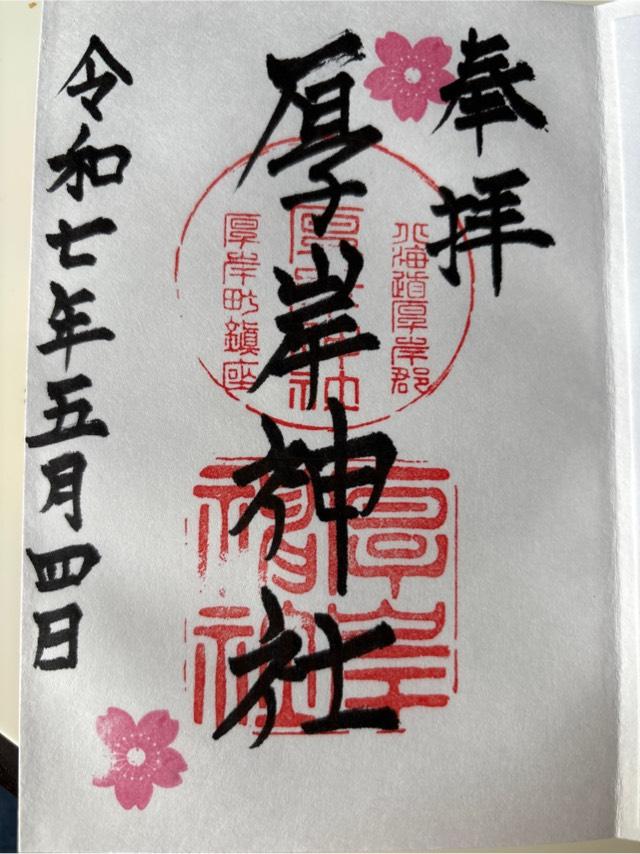 奉拝
北海道厚岸郡
厚岸神社
厚岸町鎮座
厚岸神社
令和七年五月四日